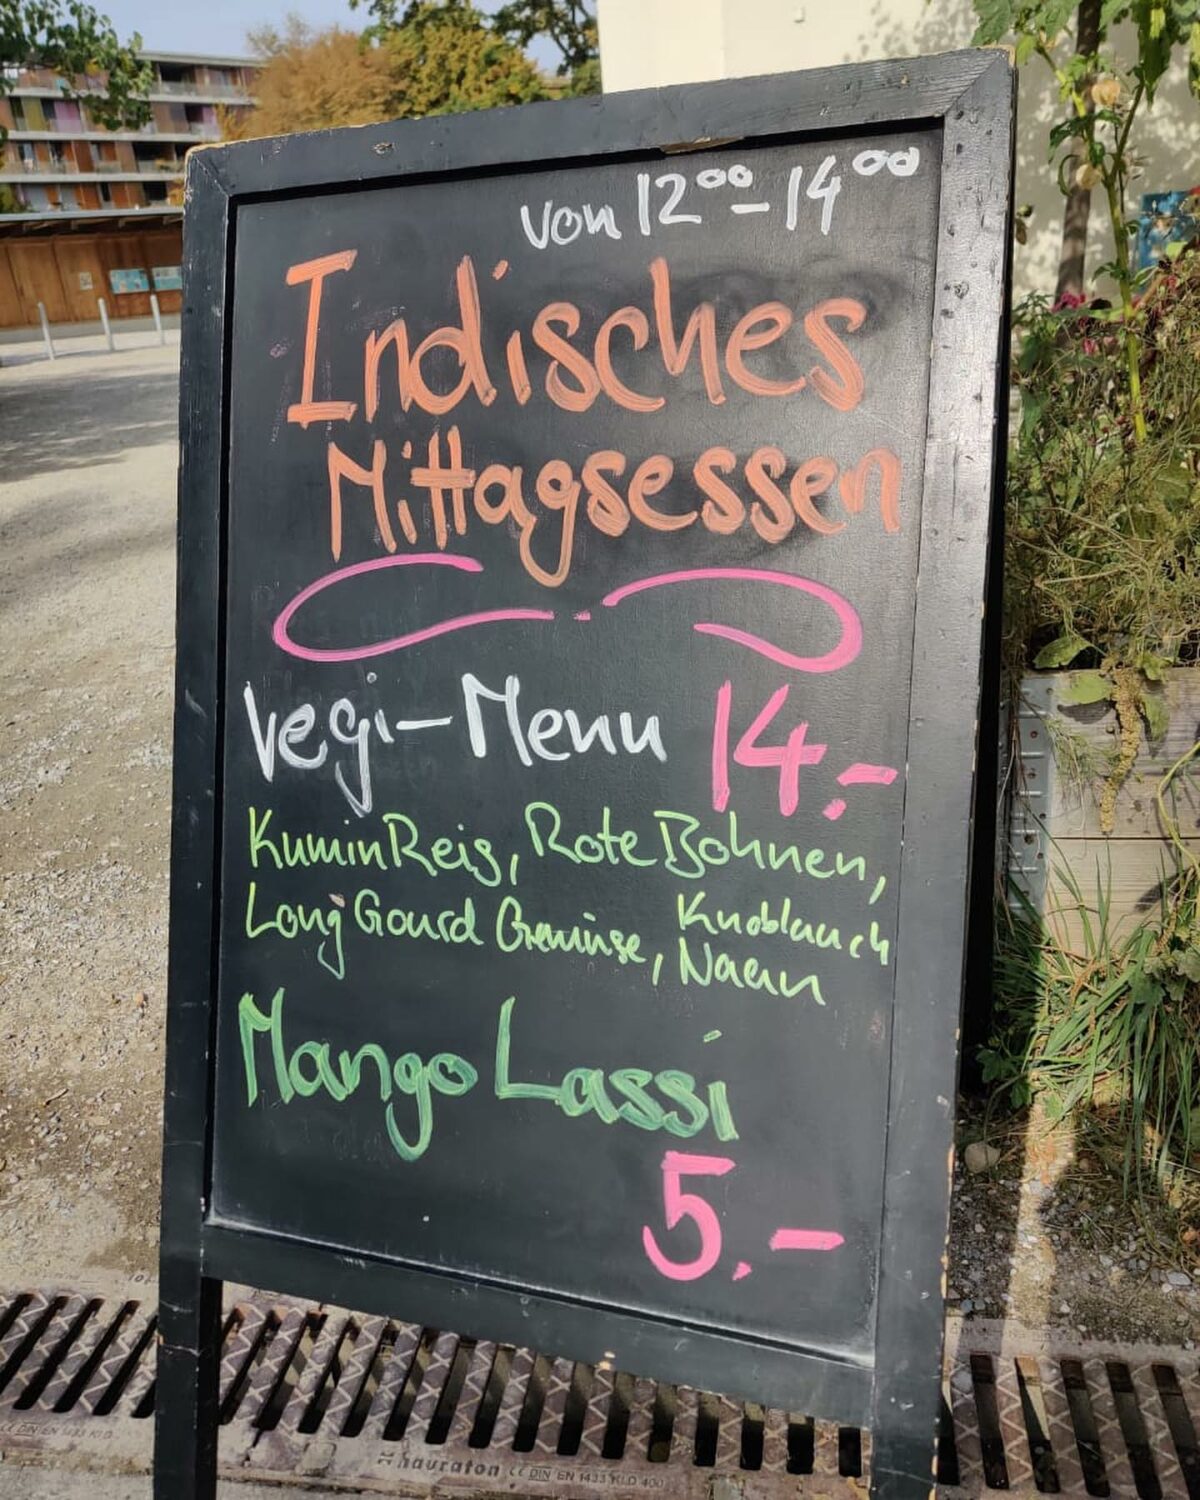 von 12⁰⁰-14⁰⁰
Indisches
Mittagsessen
Vegi-Menu 14.-
Kumin Reis, Rote Bohnen,
Long Gourd Gemüse, Knoblauch
Naan
Mango Lassi
5.-
hauraton CE DIN EN 1433 KL D 400